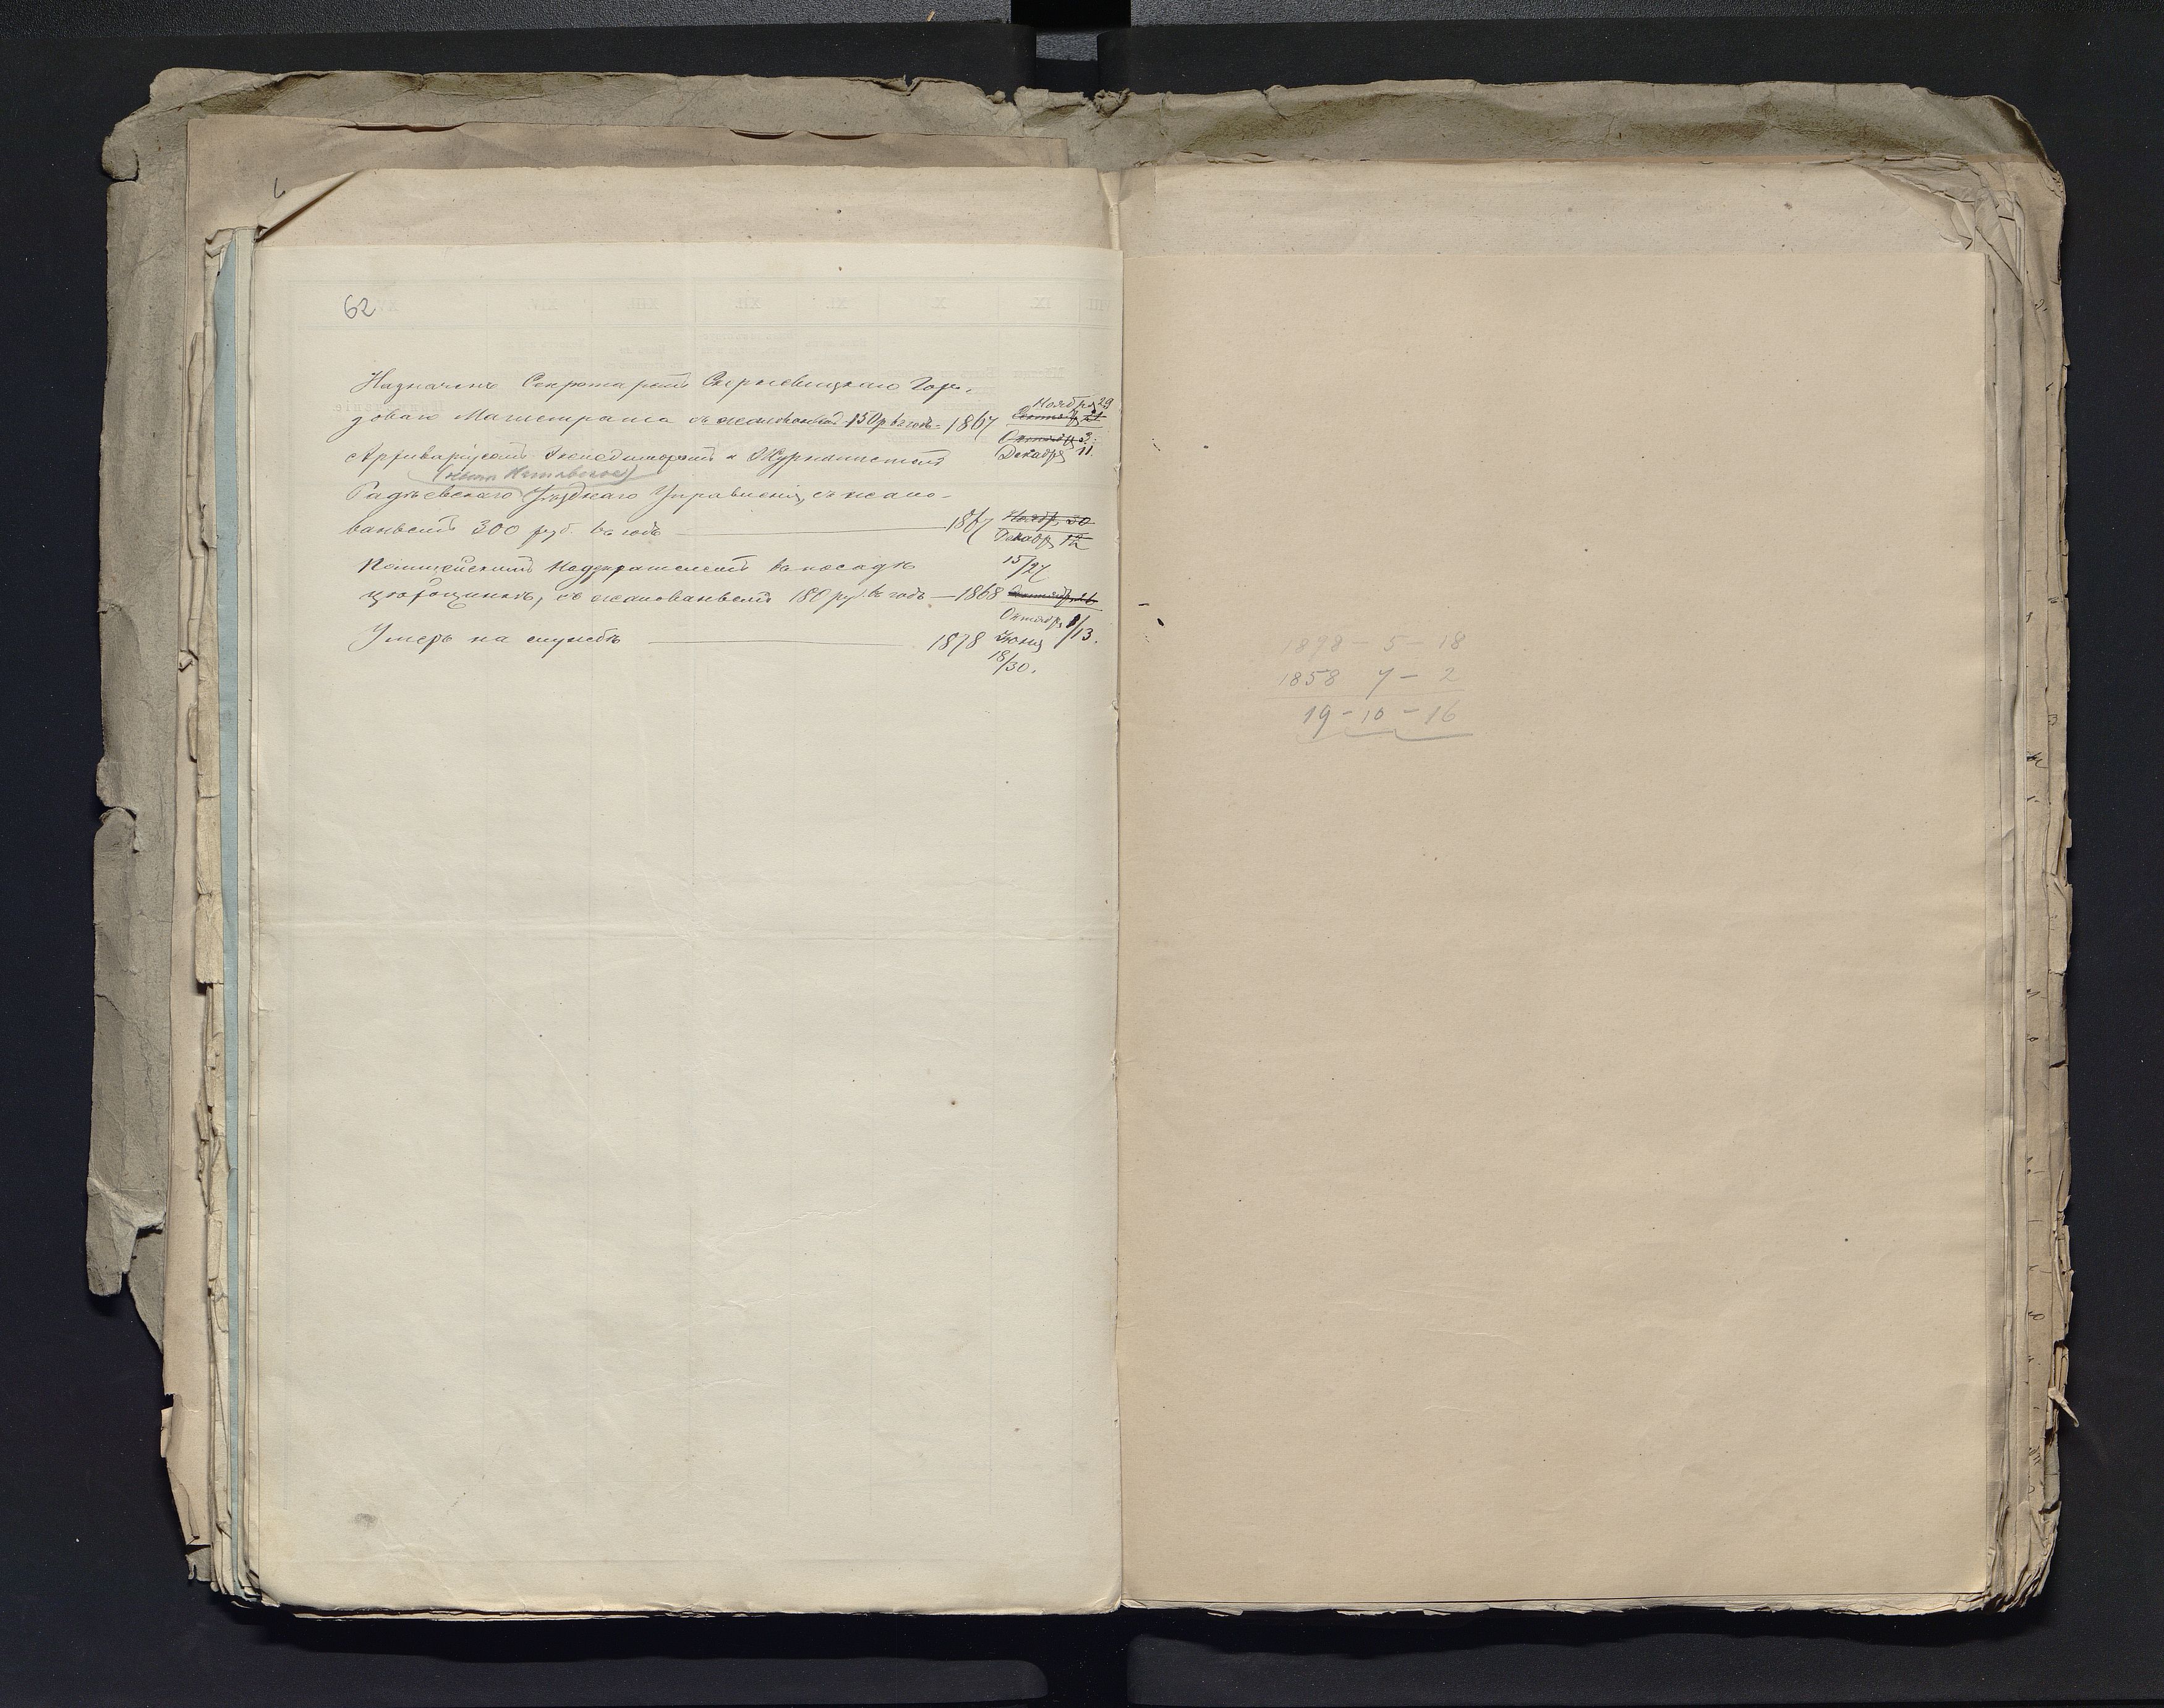 62
Назначенъ Секретаремъ Скерневицкаго Горо-
доваго Магистрата съ жалованьемъ 150 р. въ годъ - 1867 Ноября 29
11
Октября 3
Архиваріусомъ Экспедиторомъ и Журналистомъ Декабря 11
Радѣевскаго Уѣзднаго Управленія, съ жало-
ваньемъ 300 руб. въ годъ — 1867 Ноябр. 30
Декабр. 12
Полицейскимъ Надзирателемъ въ посадѣ 15/27
съ жалованьемъ 180 руб. въ годъ — 1868
Октября 1/13.
Умеръ на службѣ — 1878 Іюня
18/30.
1878 - 5 - 18
1858 7 - 2
19 - 10 - 16